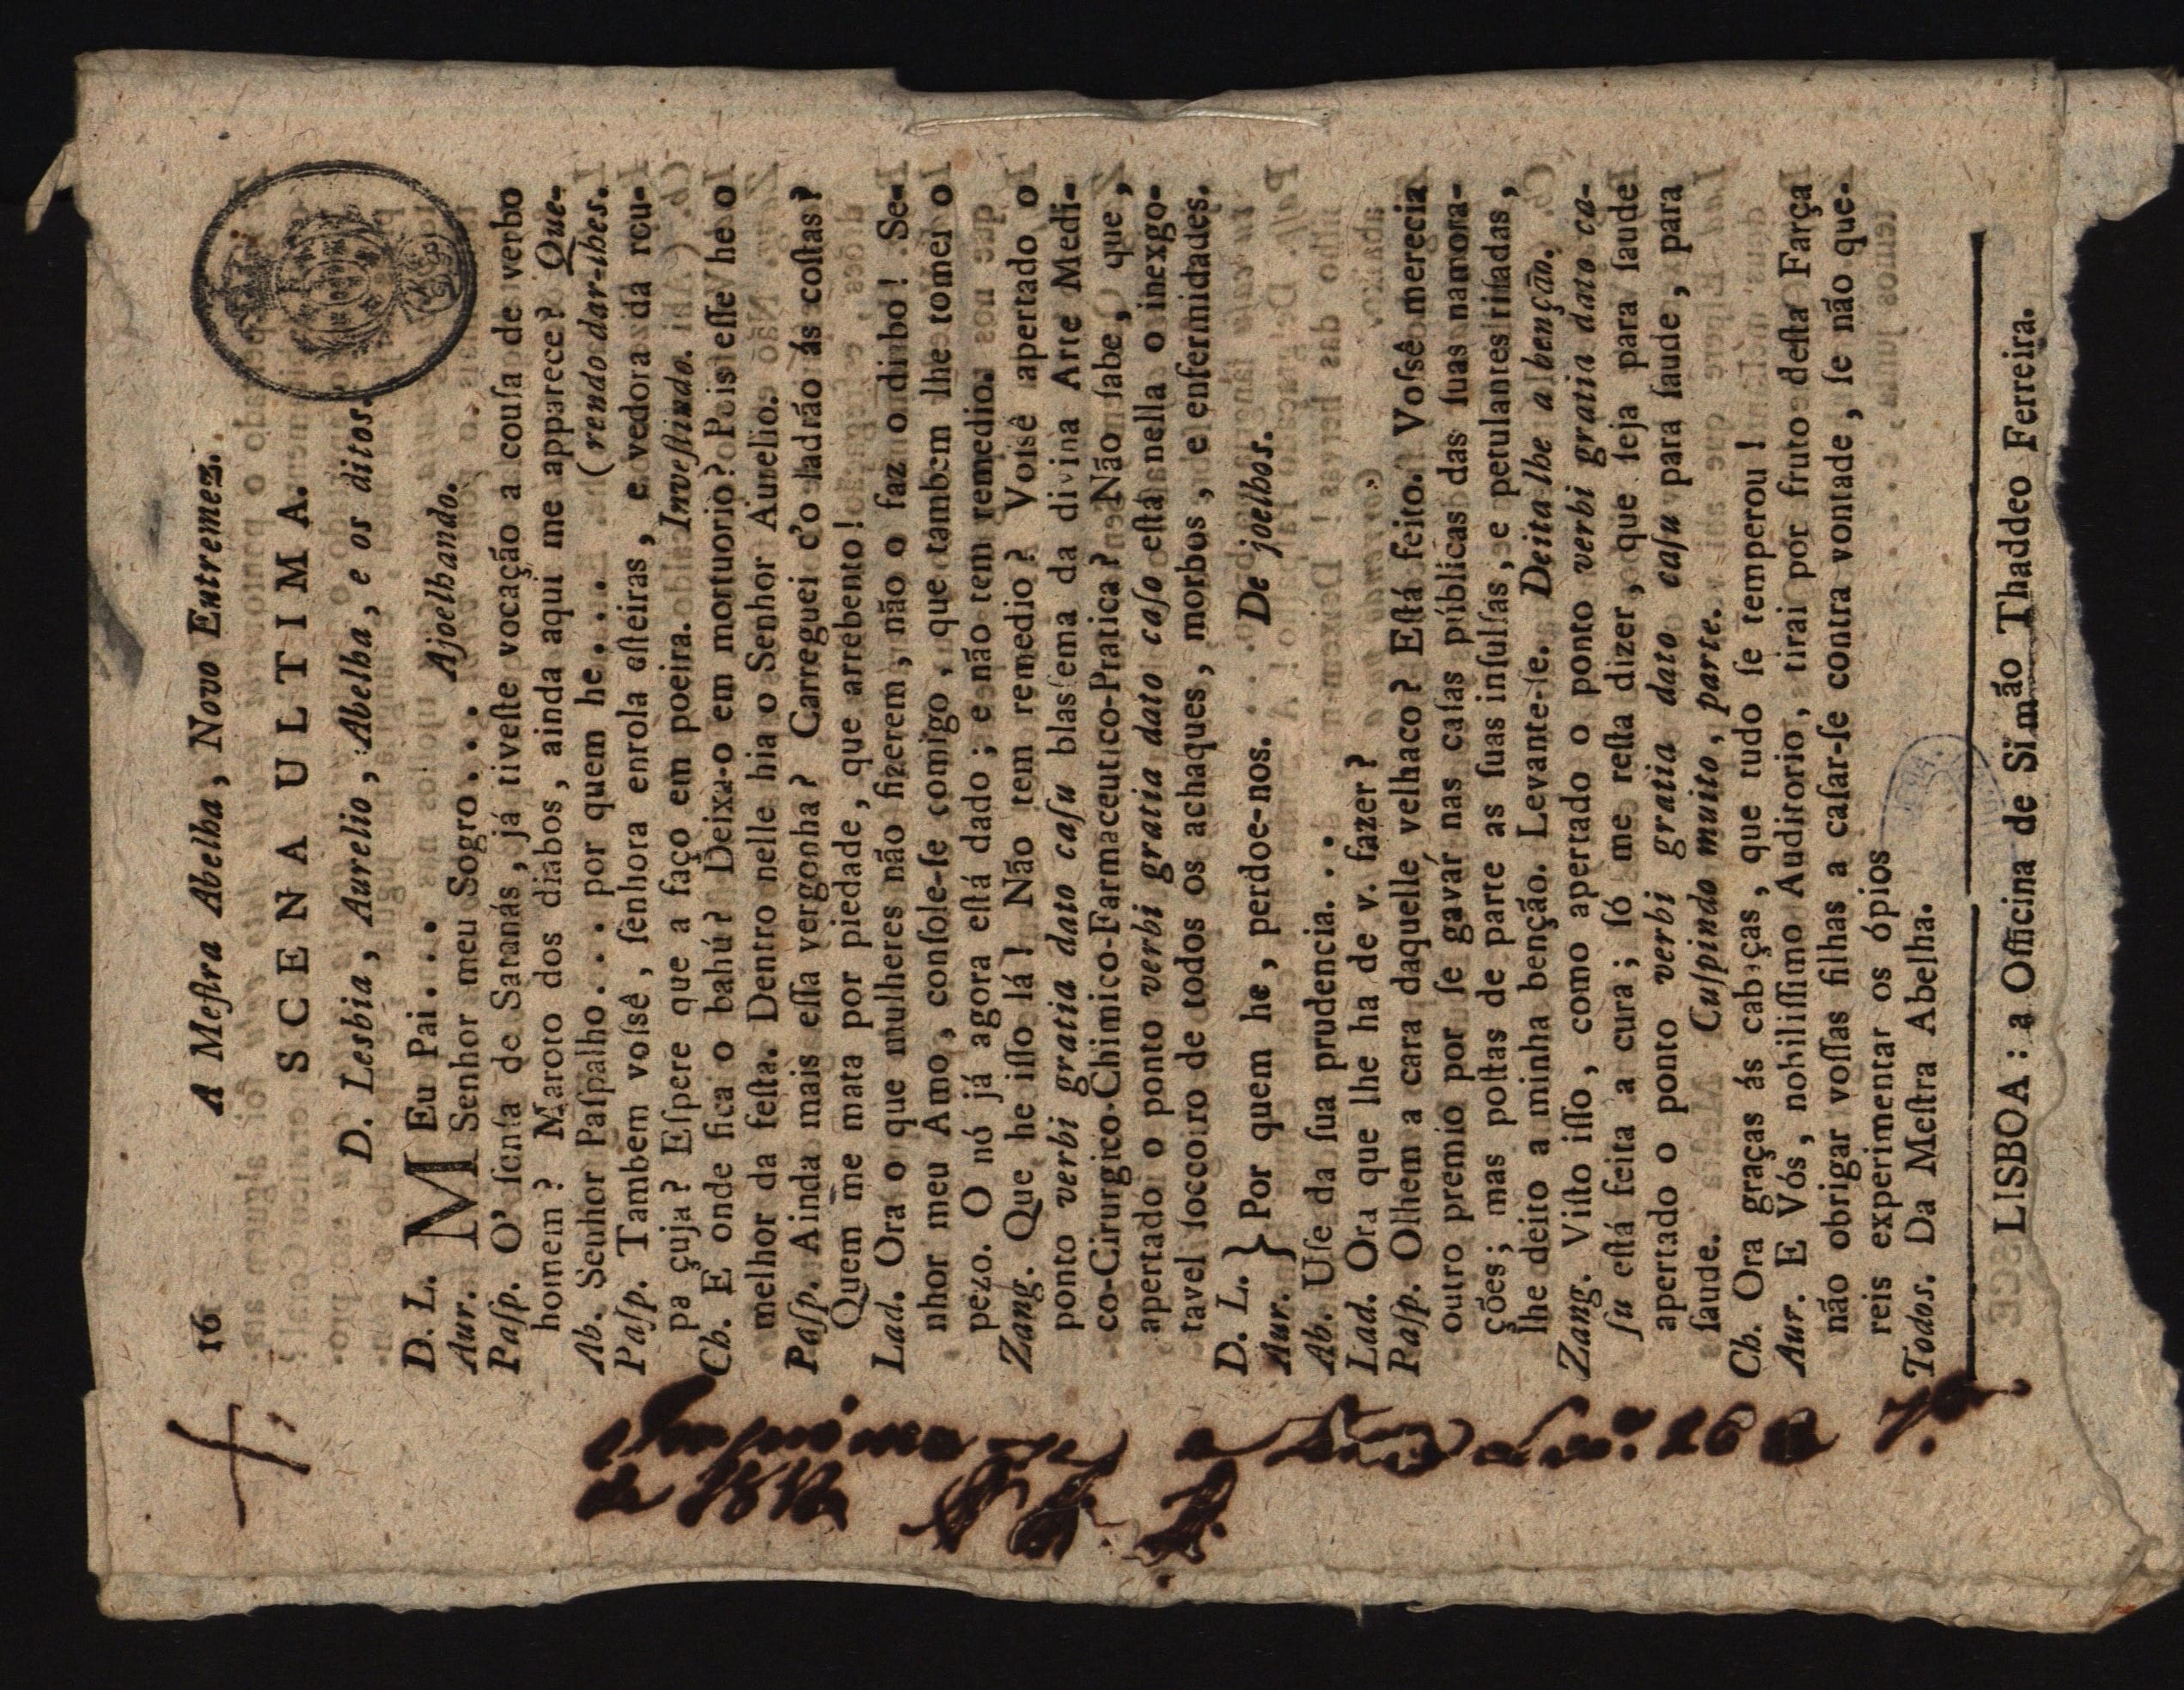 16 A Meſtra Abelha, Novo Entremez.
SCENA ULTIMA.
D. Lesbia, Aurelio, Abelha, e os ditos.
D. L. MEu Pai.... Ajoelhando.
Aur. Senhor meu Sogro....
Paſp. O' ſenſa de Satanás, já tiveſte vocação a couſa de verbo
homem? Maroto dos diabos, ainda aqui me apparece? Que-
(rendo dar-lhes.
Ab. Senhor Paſpalho.... por quem he....
Paſp. Tambem voſsê, ſenhora enrola eſteiras, e vedora da rou-
pa çuja? Eſpere que a faço em poeira. Inveſtindo.
Ch. E onde fica o bahú? Deixa-o em mortuorio? Pois eſſe he o
melhor da feſta. Dentro nelle hia o Senhor Aurelio.
Paſp. Ainda mais eſſa vergonha? Carreguei c'o ladrão ás coſtas?
Quem me mata por piedade, que arrebento!
Lad. Ora o que mulheres não fizerem, não o faz o diabo! Se-
nhor meu Amo, conſole-ſe comigo, que tambem lhe tomei o
pezo. O nó já agora eſtá dado; e não tem remedio.
Zang. Que he iſſo lá! Não tem remedio? Voſsê apertado o
ponto verbi gratia dato caſu blasfema da divina Arte Medi-
co-Cirurgico-Chimico-Farmaceutico-Pratica? Não ſabe, que,
apertado o ponto verbi gratia dato caſo eſtá nella o inexgo-
tavel ſoccorro de todos os achaques, morbos, e enfermidades.
D. L. } Por quem he, perdoe-nos. De joelhos.
Aur. }
Ab. Uſe da ſua prudencia....
Lad. Ora que lhe ha de v. fazer?
Paſp. Olhem a cara daquelle velhaco? Eſtá feito. Voſsê merecia
outro premio por ſe gavar nas caſas públicas das ſuas namora-
ções; mas poſtas de parte as ſuas inſulſas, e petulantes riſadas,
lhe deito a minha benção. Levante-ſe. Deita-lhe a benção.
Zang. Viſto iſſo, como apertado o ponto verbi gratia dato ca-
ſu eſtá feita a cura; ſó me reſta dizer, que ſeja para ſaude
apertado o ponto verbi gratia dato caſu para ſaude, para
ſaude. Cuſpindo muito, parte.
Ch. Ora graças ás cabeças, que tudo ſe temperou!
Aur. E Vós, nobiliſſimo Auditorio, tirai por fruto deſta Farça
não obrigar voſſas filhas a caſar-ſe contra vontade, ſe não que-
reis experimentar os ópios
Todos. Da Meſtra Abelha.
LISBOA: a Officina de Simão Thaddeo Ferreira.